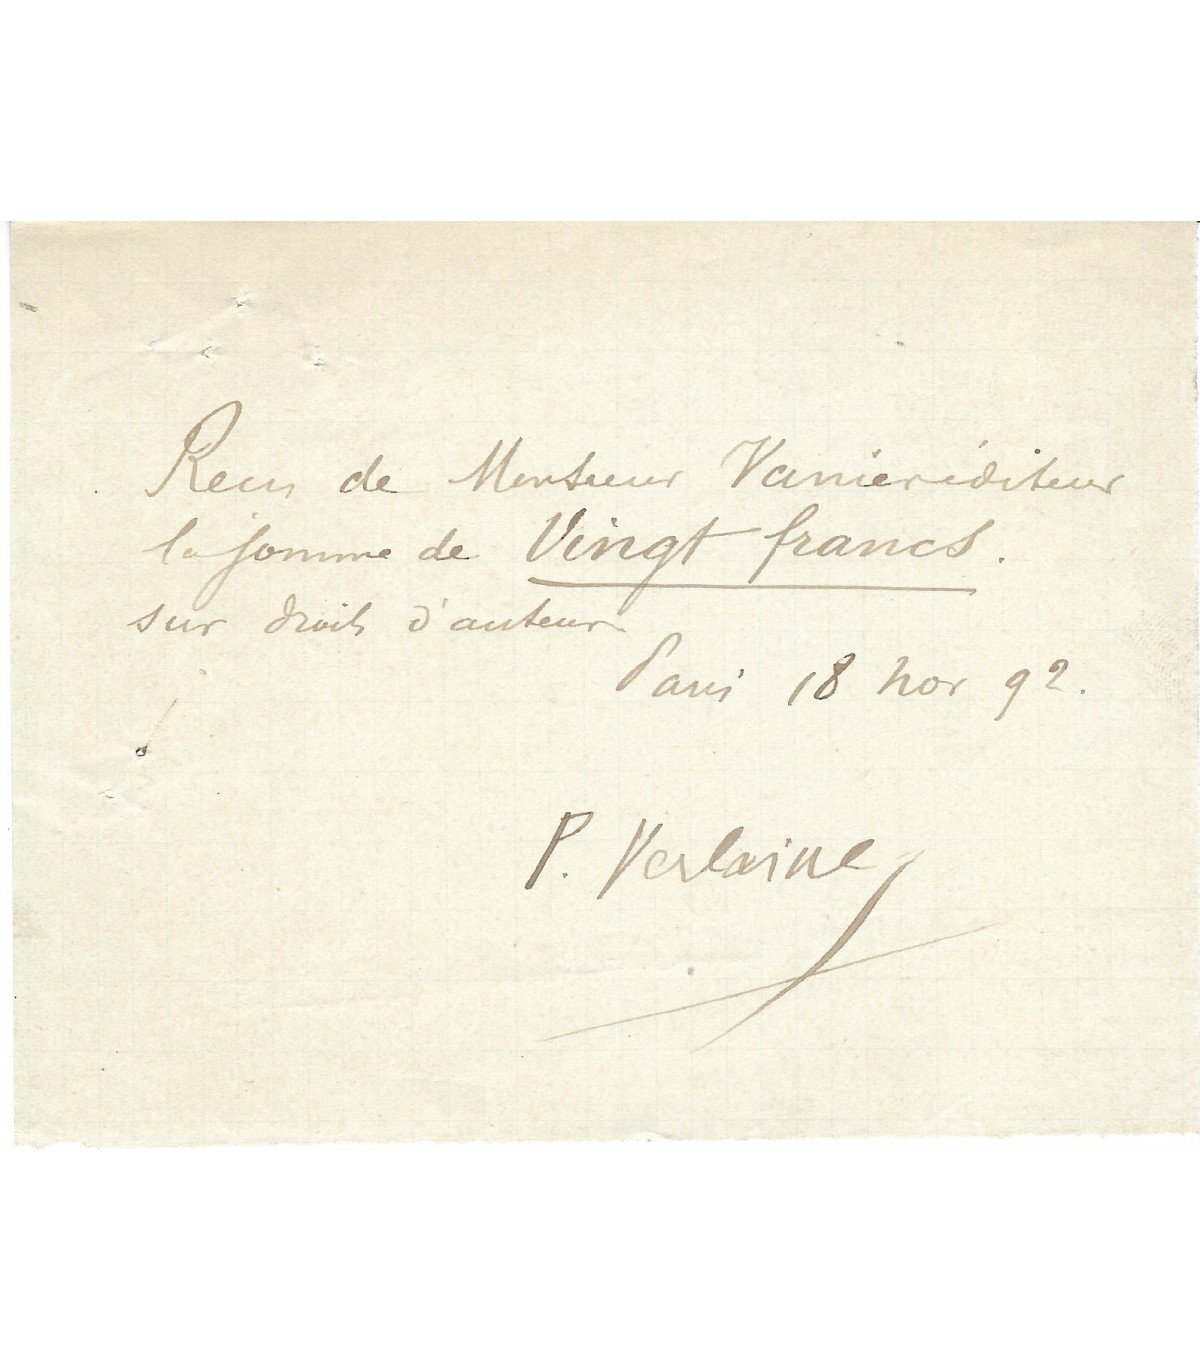 Recu de Monsieur Vanier éditeur
la somme de Vingt francs.
sur droits d'auteur
Paris 18 Nov 92.
P. Verlaine